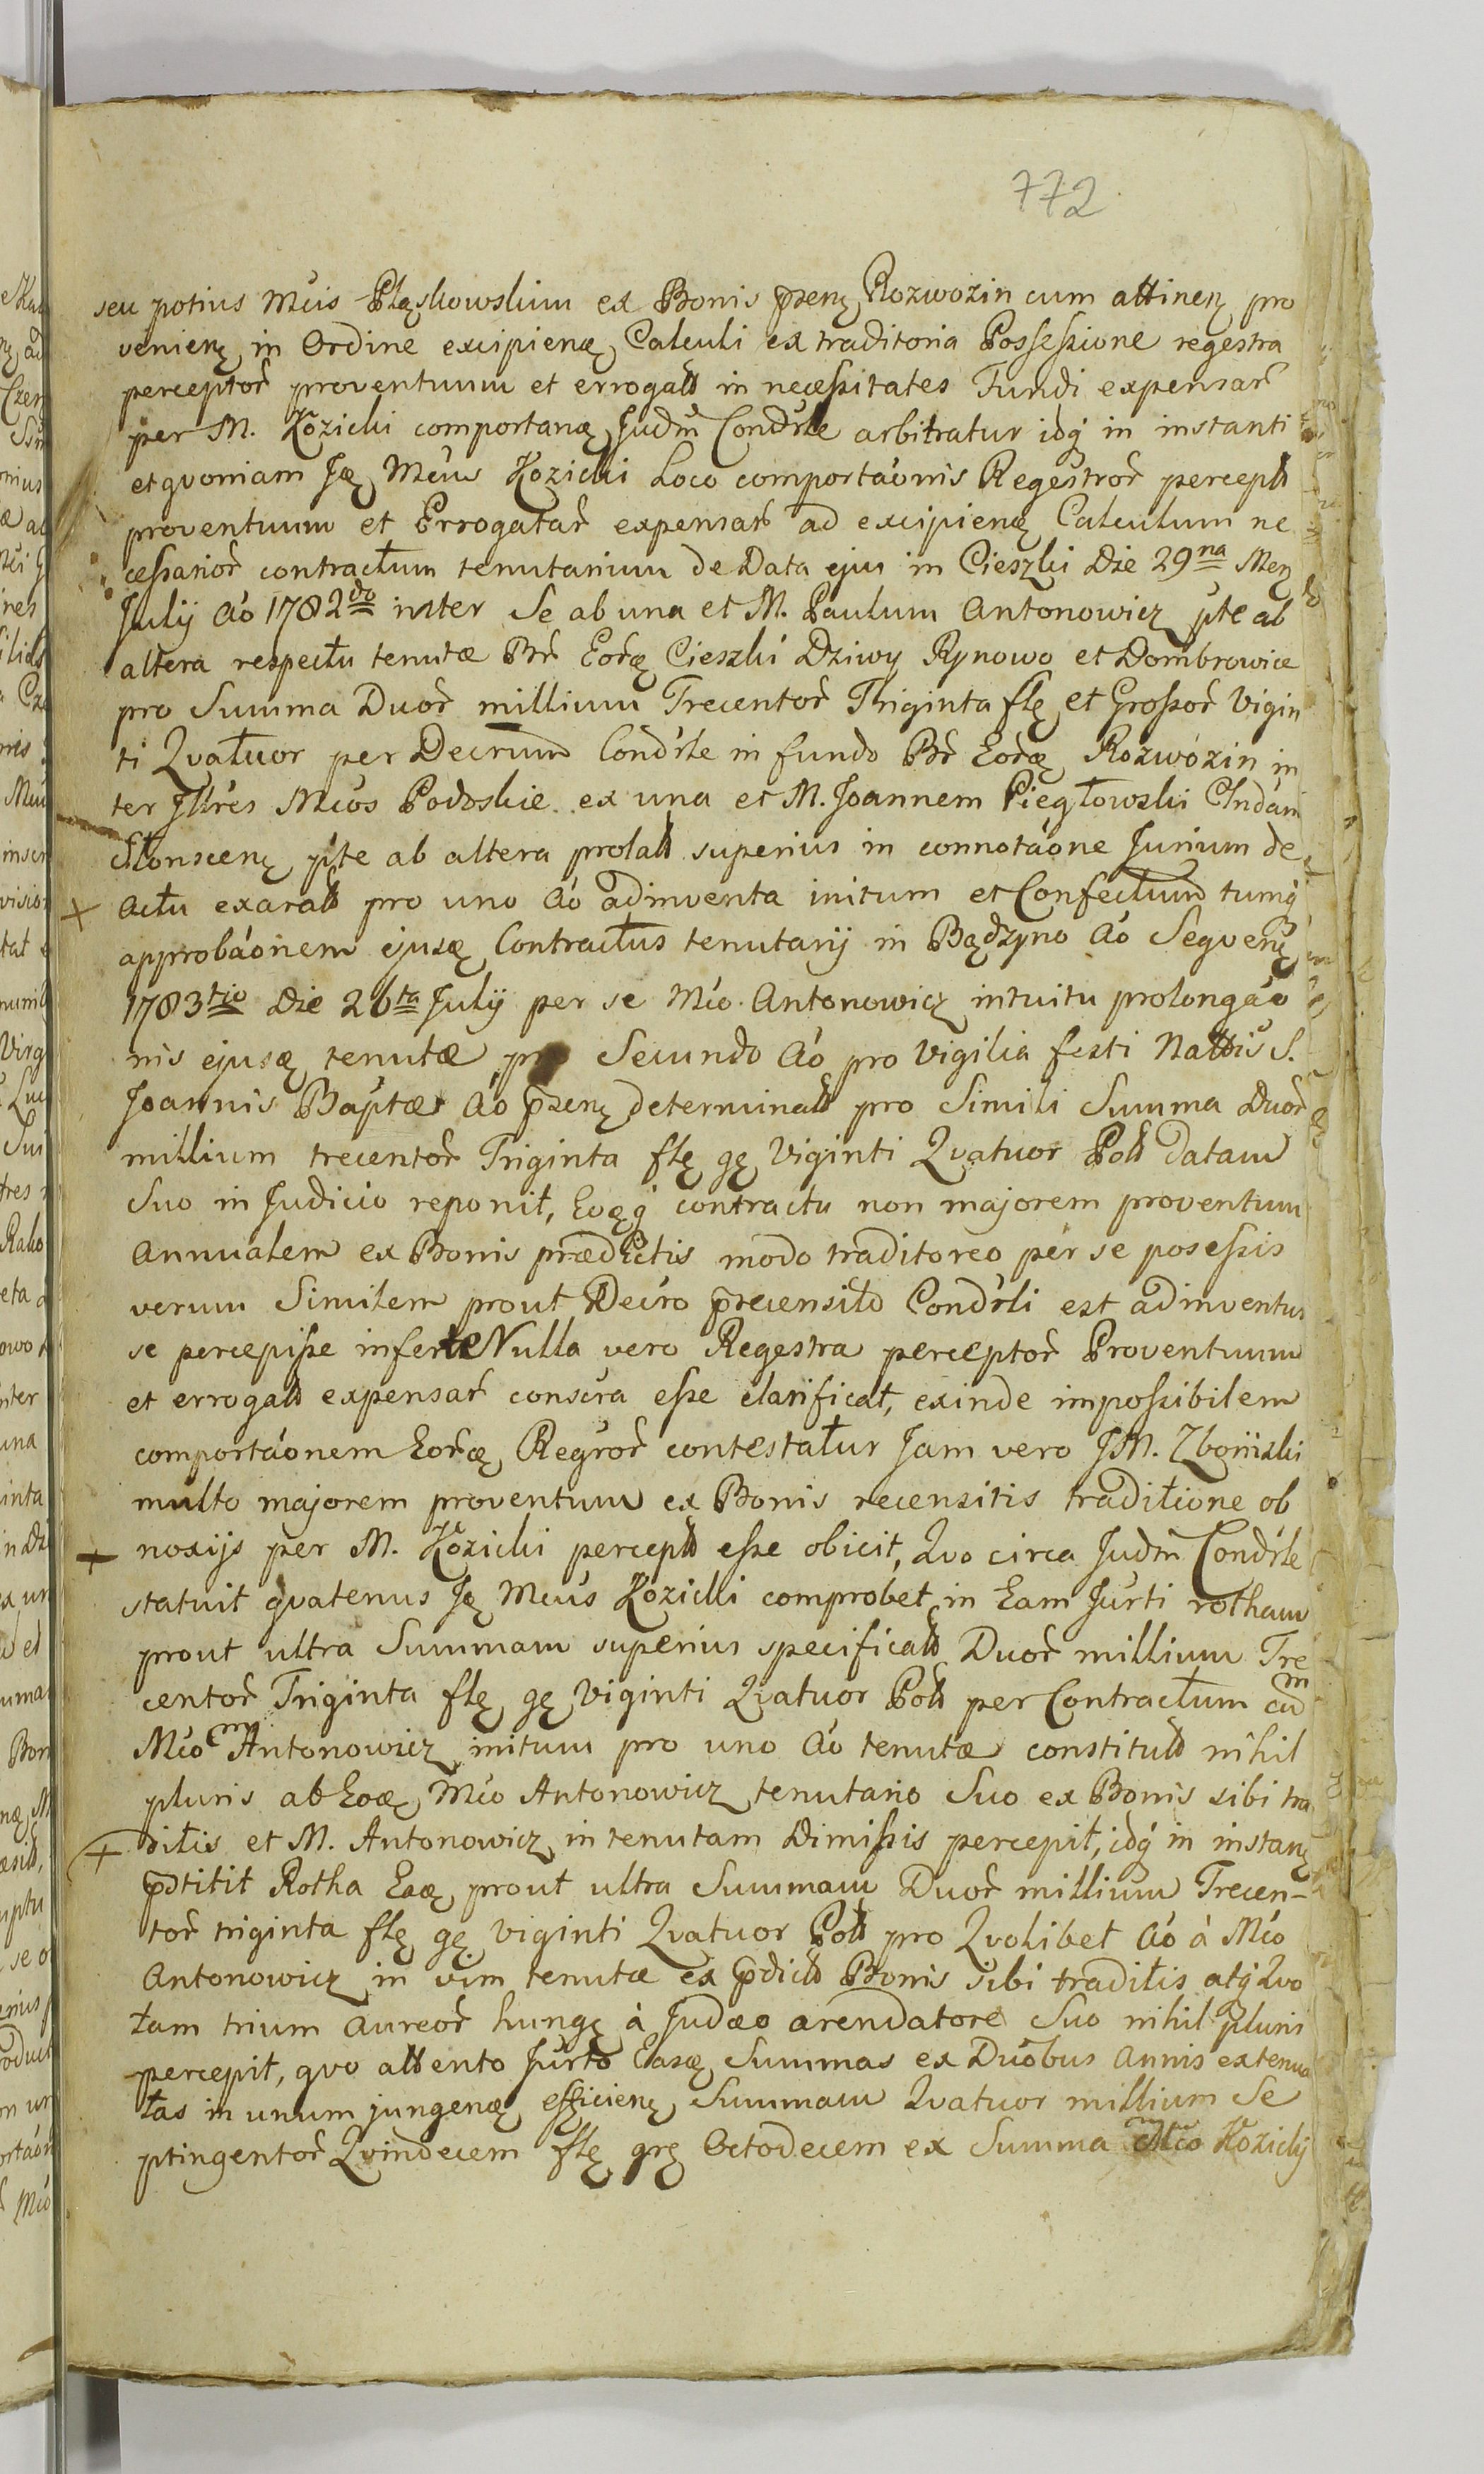 772
seu potius Mcis Pląskowskim ex Bonis p̄senę Rozwozin cum attinenę pro
venienę in Ordine excipienę Calculi ex traditoria Possessione regestra
perceptor proventuum et errogatt in necessitates Fundi expensar
per M. Kozicki comportanę Judm Condrle arbitratur idq in instanti
et qvoniam Ję Mcus Kozicki Loco comportaonis Regestror percept
proventuum et Errogatar expensar ad excipienę Calculum ne
cessarior contractum tenutarium de Data ejus in Cieszki Die 29na Men
Julij Ao 1782do inter Se ab una et M. Paulum Antonowicz pte ab
altera respectu tenutæ Br Eorę Cieszki Dziwy Rynowo et Dombrowice
pro Summa Duor millium Trecentor Triginta flę et Grossor Vigin
ti Qvatuor per Decrum Condrle in fundo Br Eorę Rozwozin in
ter Jllres Mcos Podoskie ex una et M. Joannem Piegłowski
Slonscenę pte ab altera prolatt superius in connotaone Jurium de
Actu exaratt pro uno Ao adinventa initum et Confectum tumq
approbaonem ejusę Contractus tenutarij in Bądzyno Ao Seqvenę
1783tio Die 26ta Julij per se Mco Antonowicz intuitu prolongao
nis ejusę tenutæ pro Secundo Ao pro Vigilia festi Nattis S.
Joannis Baptæ Ao p̄senę determinatt pro Simili Summa Duor
millium trecentor Triginta flę gę Viginti Qvatuor Poll datam
Suo in Judicio reponit, Eoęq contractu non majorem proventum
Annualem ex Bonis prædictis modo traditoreo per se posessis
verum Similem prout Decro p̄recensito Condrli est adinventus
se percepisse infert Nulla vero Regestra perceptor Proventuum
et errogatt expensar conscra esse clarificat, exinde impossibilem
comportaonem Eorę Regror contestatur Jam vero JM. Zboiński
multo majorem proventum ex Bonis recensitis traditione ob
noxijs per M. Kozicki percept esse obicit, Qvo circa Judm Condrle
statuit qvatenus Ję Mcus Kozicki comprobet in Eam Jurti rotham
prout ultra Summam superius specificatt Duor millium Tre
centor Triginta flę gę Viginti Qvatuor Poll per Contractum cum
Mcom Antonowicz initum pro uno Ao tenutæ constitutt nihil
pluris ab Eoę Mco Antonowicz tenutario Suo ex Bonis sibi tra
ditis et M. Antonowicz in tenutam Dimissis percepit, idq in instanę
p̄stitit Rotha Eaę prout ultra Summam Duor millium Trecen-
tor triginta flę gę Viginti Qvatuor Poll pro Qvolibet Ao à Mco
Antonowicz in vim tenutæ ex p̄dictt Bonis sibi traditis atq Qvo
tam trium Aureor hungę à Judæo arendatore Suo nihil pluris
percepit, qvo attento Jurto Easę Summas ex Duobus Annis extenua
tas in unum jungenę efficienę Summam Qvatuor millium Se
ptingentor Qvindecem flę grę Octodecem ex Summa Mco Kozicki